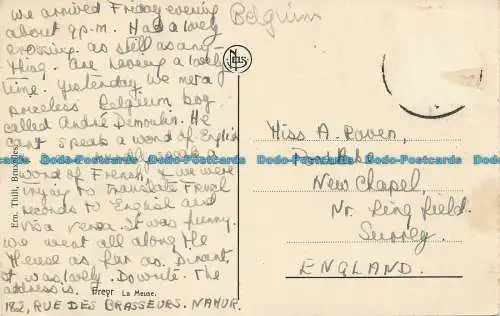 we arrived Friday evening
about 9 p.m. Had a lovely
crossing. as still as any-
thing. Are having a lovely
time. Yesterday we met a
priceless Belgium boy
called André Demoulin. He
cant speak a word of English
word of French, & we were
trying to translate French
records to English and
visa versa. It was funny.
we went all along the
Meuse as far as Dinant.
it was lovely. Do write. The
address is.
182, RUE DES BRASSEURS. NAMUR.
Belgium
NELS
Ern. Thill, Bruxelles
Freyr La Meuse.
Miss A. Raven,
New Chapel,
Nr. Lingfield.
Surrey.
ENGLAND.
Dodo-Postcards Dodo-Postcards Dodo-Postcards Dodo-Postcards Dodo-Postcards